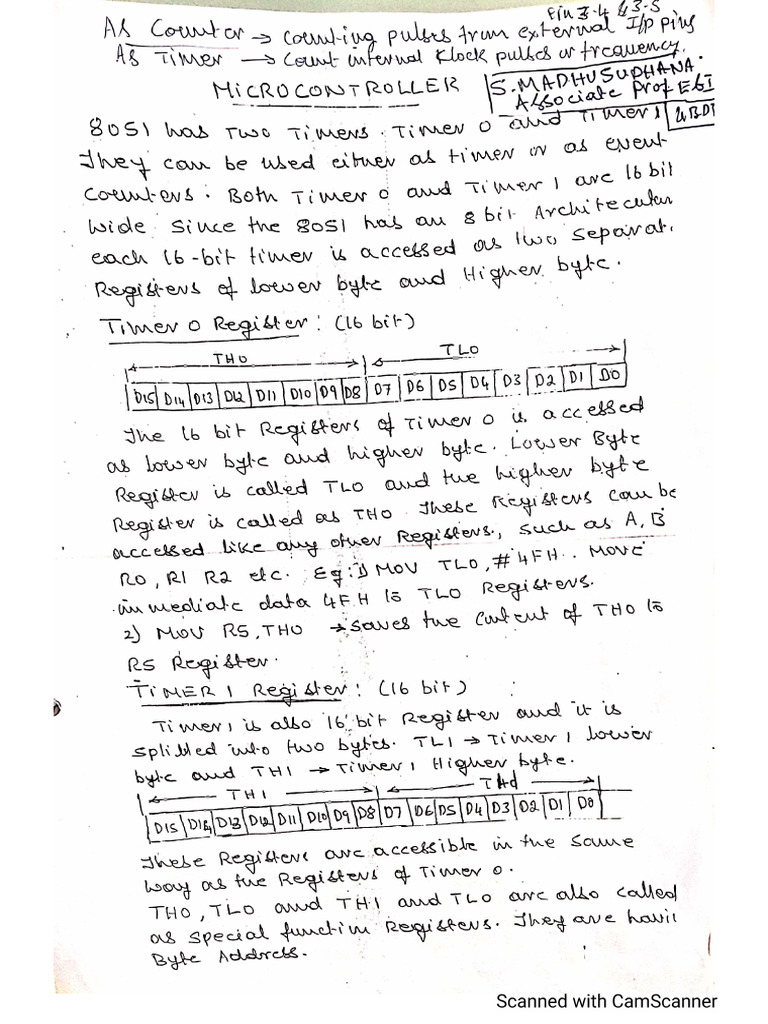 Pin 3.4 & 3.5
As Counter → Counting pulses from external I/p pins
As Timer → Count internal Klock pulses or frequency.
MICROCONTROLLER
S. MADHUSUDHANA.
Associate Prof E&I
8051 has Two Timers. Timer 0 and Timer 1
They can be used either as timer or as event
Counters. Both Timer 0 and Timer 1 are 16 bit
wide. Since the 8051 has an 8 bit Architectur
each 16-bit timer is accessed as two Separat.
Registers of lower byte and Higher byte.
Timer 0 Register: (16 bit)
TH0 TL0
D15 D14 D13 D12 D11 D10 D9 D8 D7 D6 D5 D4 D3 D2 D1 D0
The 16 bit Registers of Timer 0 is accessed
as lower byte and higher byte. Lower Byte
Register is called TL0 and the higher byte
Register is called as TH0. These Registers can be
accessed like any other Registers, such as A, B
R0, R1 R2 etc. Eg: 1) MOV TL0, #4FH. Move
immediate data 4FH to TL0 Registers.
2) MOV R5, TH0 → saves the Content of TH0 to
R5 Register.
TIMER 1 Register: (16 bit)
Timer 1 is also 16 bit Register and it is
splitted into two bytes. TL1 → Timer 1 lower
byte and TH1 → Timer 1 Higher byte.
TH1
D15 D14 D13 D12 D11 D10 D9 D8 D7 D6 D5 D4 D3 D2 D1 D0
These Registers are accessible in the same
way as the Registers of Timer 0.
TH0, TL0 and TH1 and TL0 are also called
as special function Registers. They are havi
Byte Address.
Scanned with CamScanner